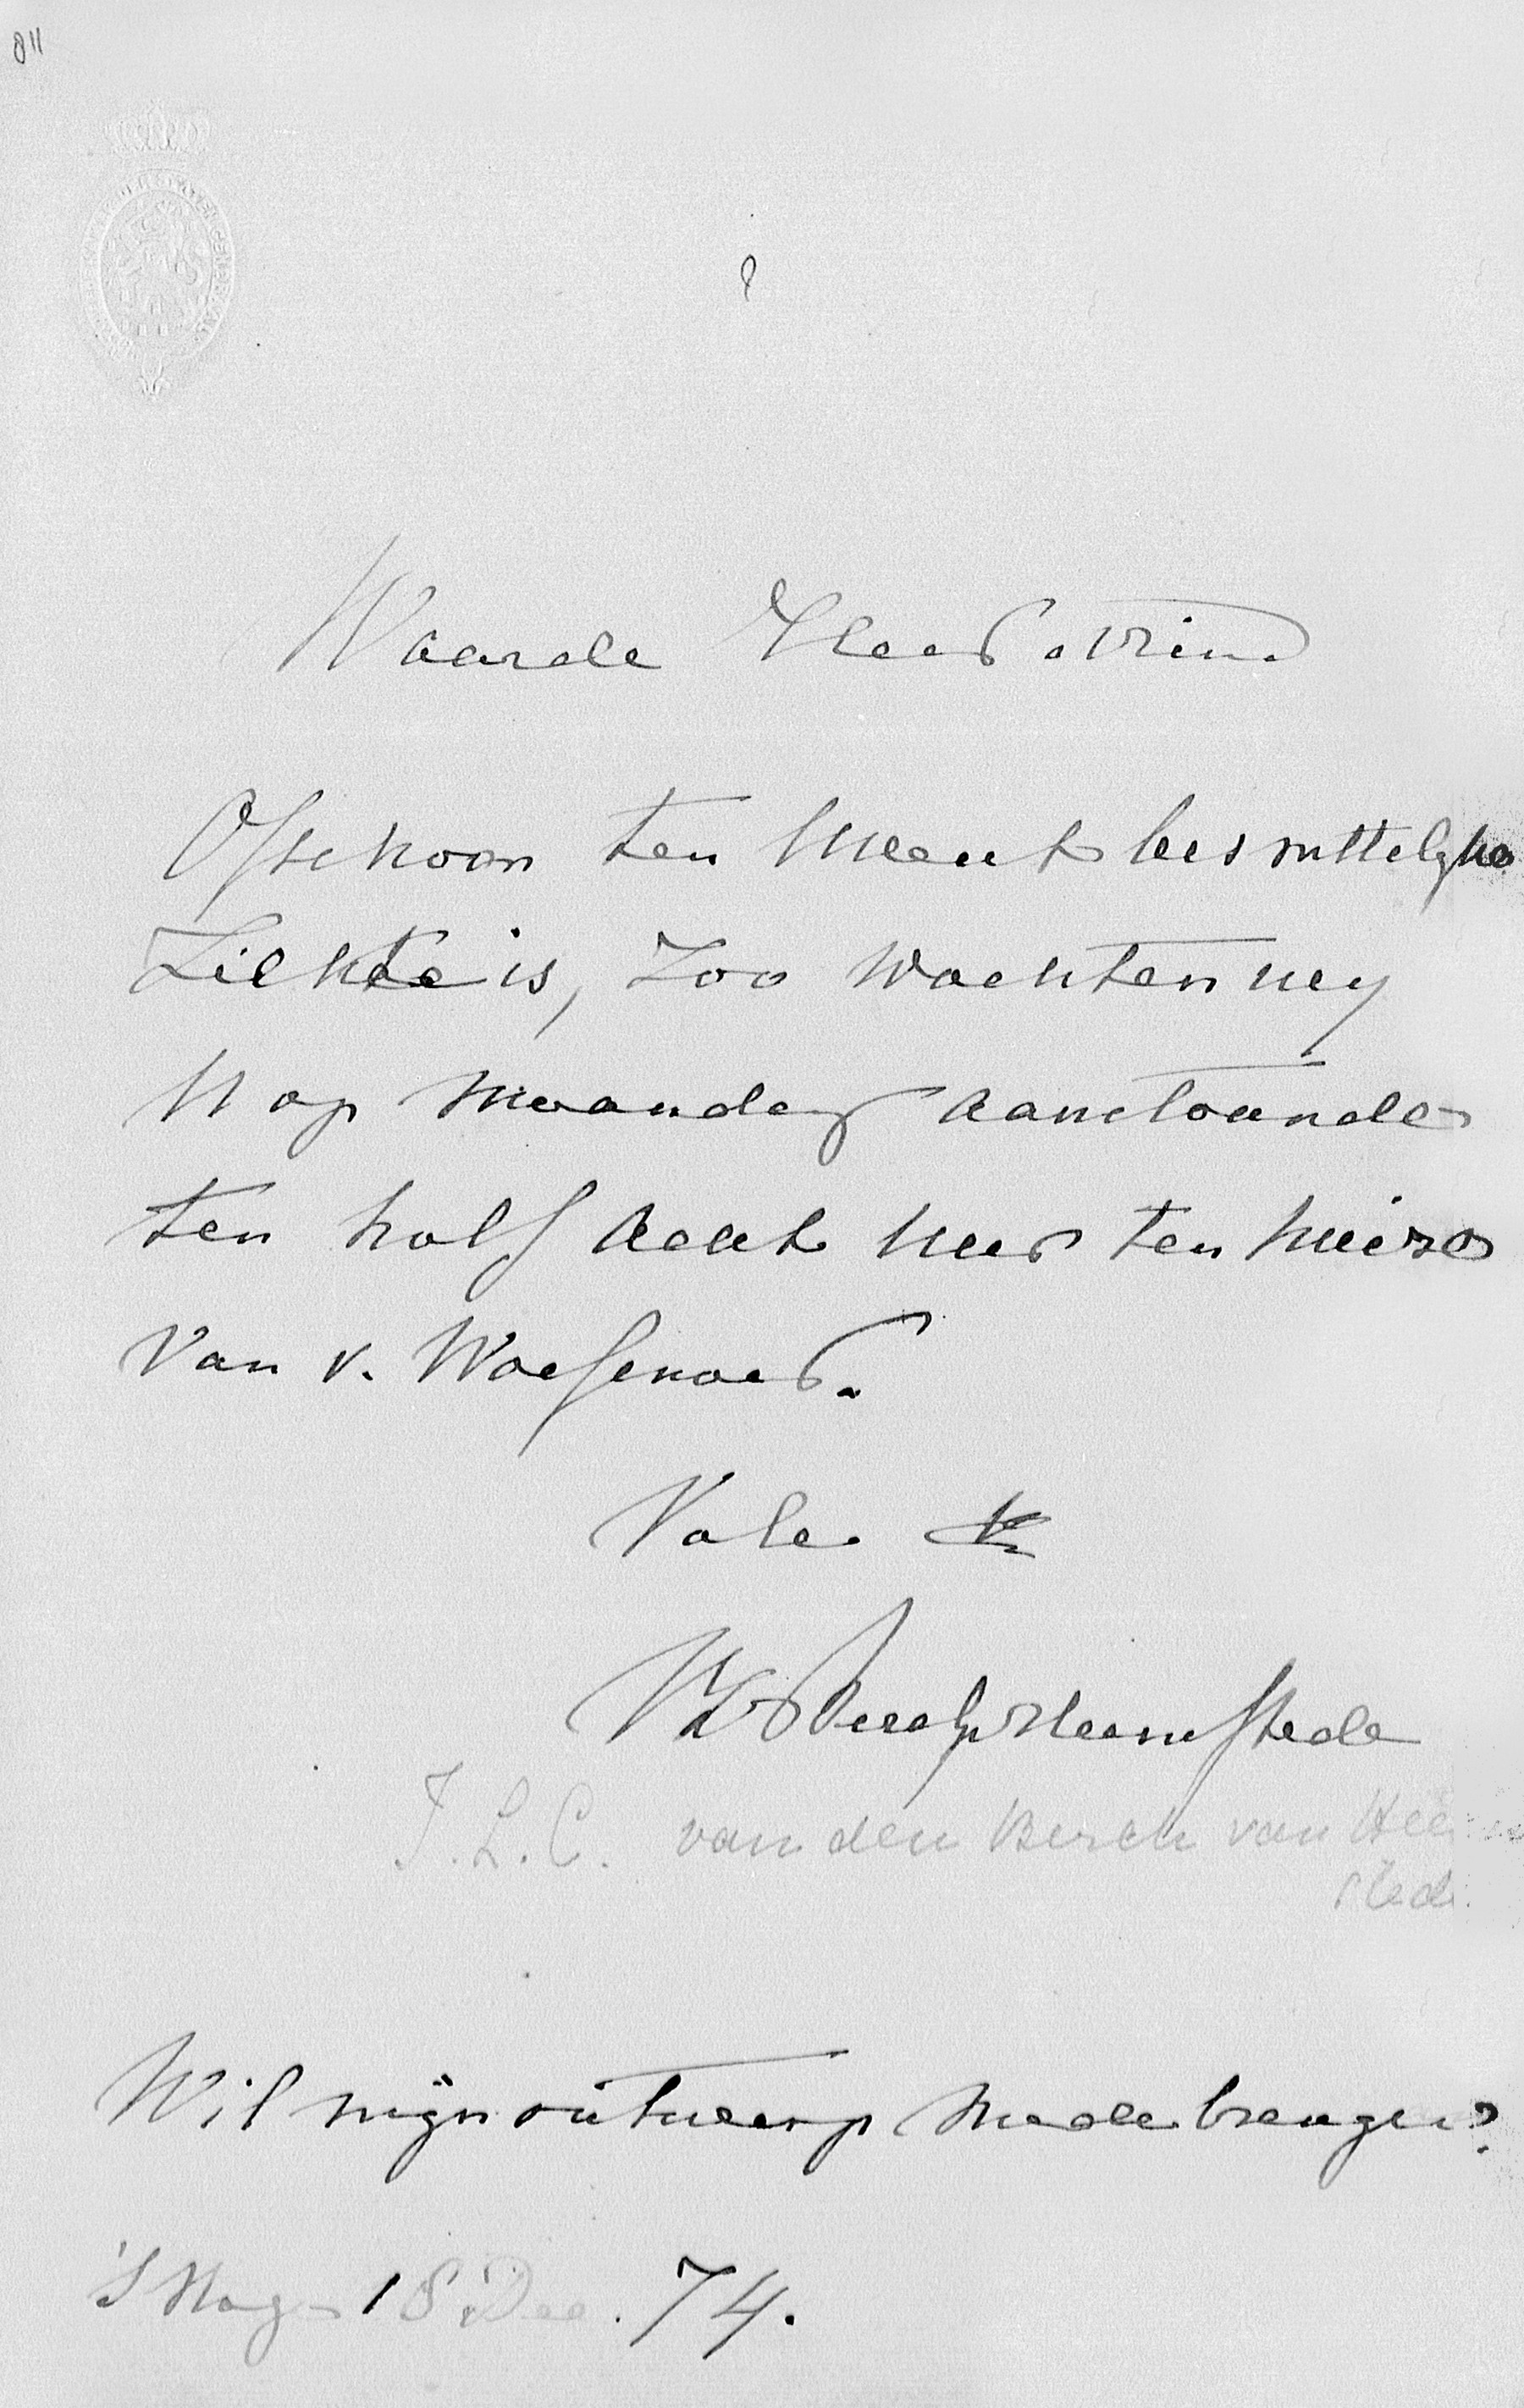 Waarde Heer & Vriend
Ofschoon ten Uwent besmettelyke
Ziekte is, zoo wachten wy
U op Maandag aanstaande
ten half acht uur ten huize
van v. Wassenaer.
Vale
vd Berch v Heemstede
J. L. C. van den Berch van Hee
stede
Wil mijn ontwerp medebrengen?
's Hage 18 Dec. 74.